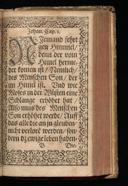 Johan. Cap. 3.
Niemand fehrt
gen Himmel/
denn der vom
Himel hernie-
der komen ist/ Nemlich/
des Menschen Son/ der
im Himel ist. Vnd wie
Moses in der Wüsten eine
Schlange erhöhet hat/
Also mus des Menschen
Son erhöhet werde/ Auff
das alle die an jn gleuben
nicht verlorë werden/ son-
dern dz ewige leben habë
B